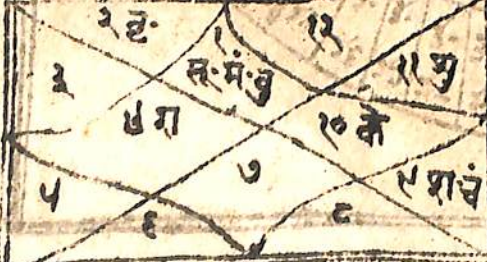 २ बृ॰ १ १२
३ सू॰मं॰बु ११ शु
४ रा १० के
५ ७ ९ श चं
६ ८